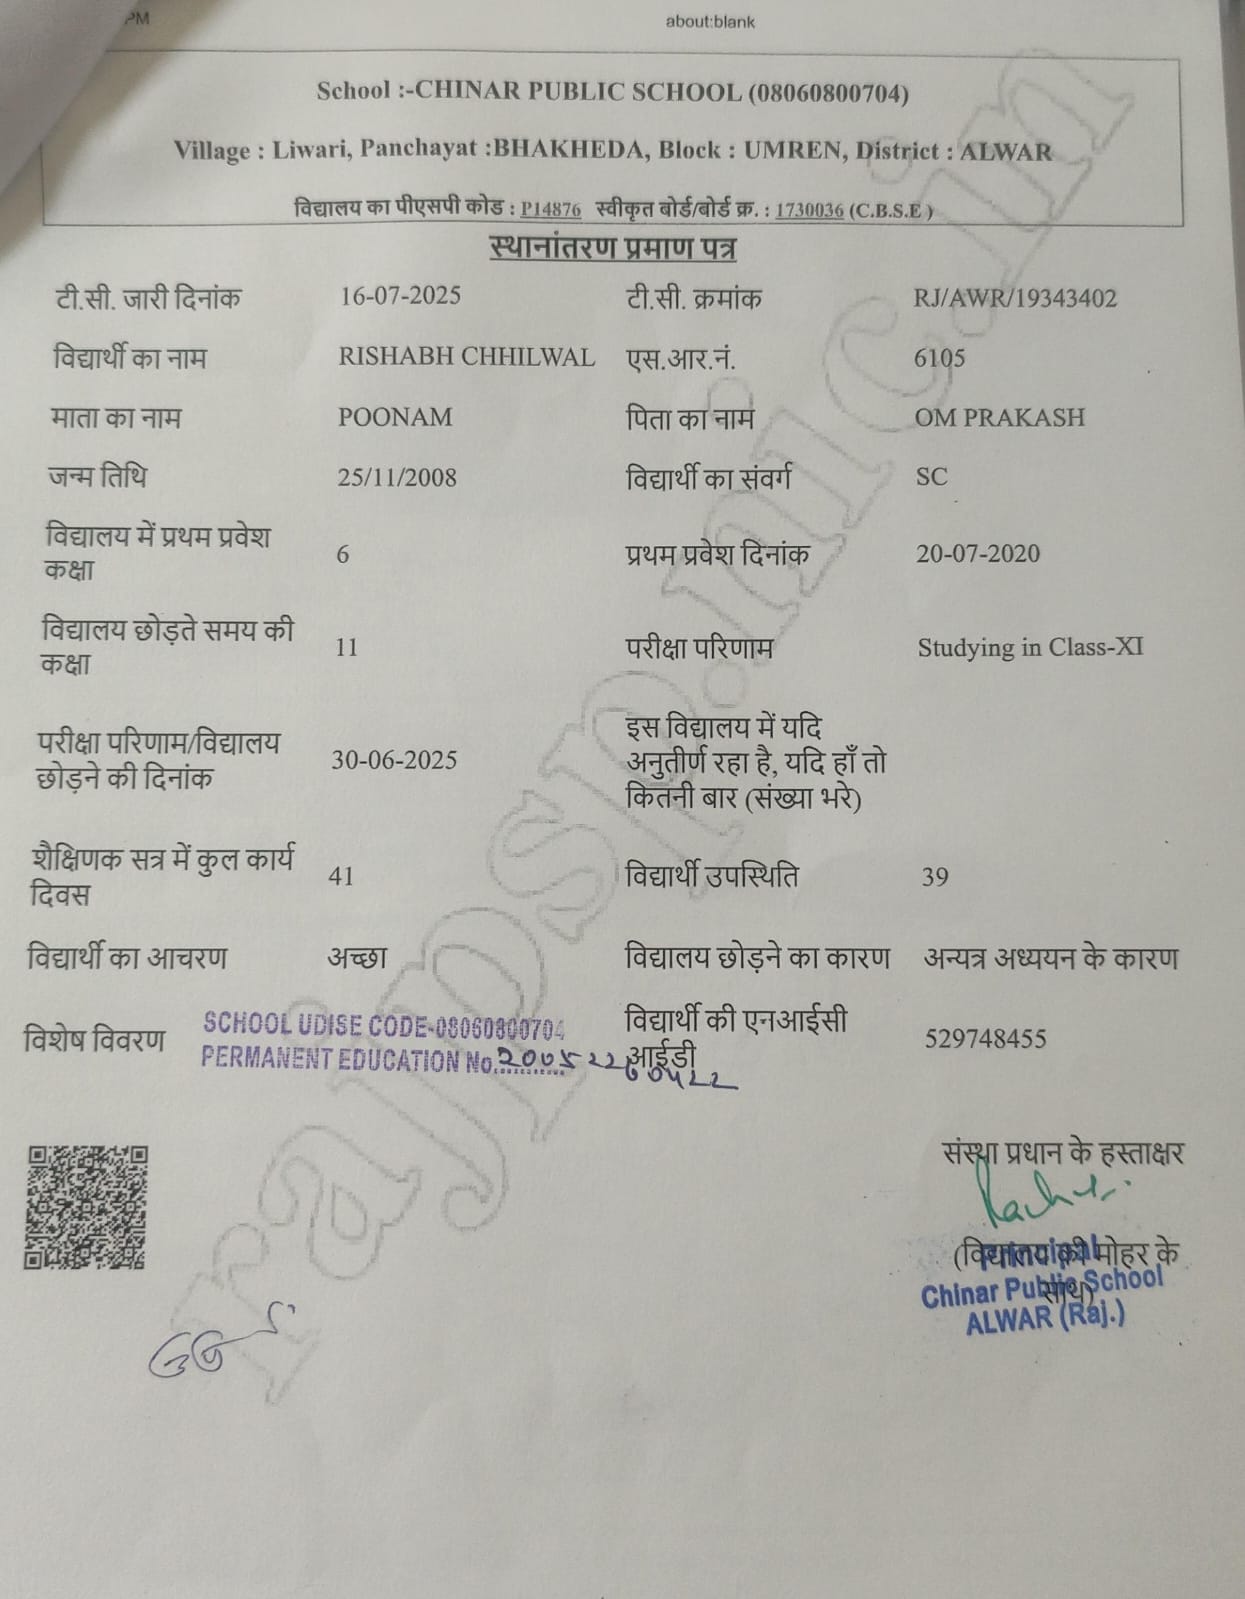 PM about:blank
School :-CHINAR PUBLIC SCHOOL (08060800704)
Village : Liwari, Panchayat :BHAKHEDA, Block : UMREN, District : ALWAR
विद्यालय का पीएसपी कोड : P14876 स्वीकृत बोर्ड/बोर्ड क्र. : 1730036 (C.B.S.E )
स्थानांतरण प्रमाण पत्र
टी.सी. जारी दिनांक 16-07-2025 टी.सी. क्रमांक RJ/AWR/19343402
विद्यार्थी का नाम RISHABH CHHILWAL एस.आर.नं. 6105
माता का नाम POONAM पिता का नाम OM PRAKASH
जन्म तिथि 25/11/2008 विद्यार्थी का संवर्ग SC
विद्यालय में प्रथम प्रवेश
कक्षा 6 प्रथम प्रवेश दिनांक 20-07-2020
विद्यालय छोड़ते समय की
कक्षा 11 परीक्षा परिणाम Studying in Class-XI
परीक्षा परिणाम/विद्यालय
छोड़ने की दिनांक 30-06-2025
इस विद्यालय में यदि
अनुतीर्ण रहा है, यदि हाँ तो
कितनी बार (संख्या भरे)
शैक्षिणक सत्र में कुल कार्य
दिवस 41 विद्यार्थी उपस्थिति 39
विद्यार्थी का आचरण अच्छा विद्यालय छोड़ने का कारण अन्यत्र अध्ययन के कारण
विशेष विवरण
SCHOOL UDISE CODE-08060800704
PERMANENT EDUCATION No.
विद्यार्थी की एनआईसी
आईडी 529748455
संस्था प्रधान के हस्ताक्षर
(विद्यालय की मोहर के
साथ)
Principal
Chinar Public School
ALWAR (Raj.)
rajpsp.nic.in